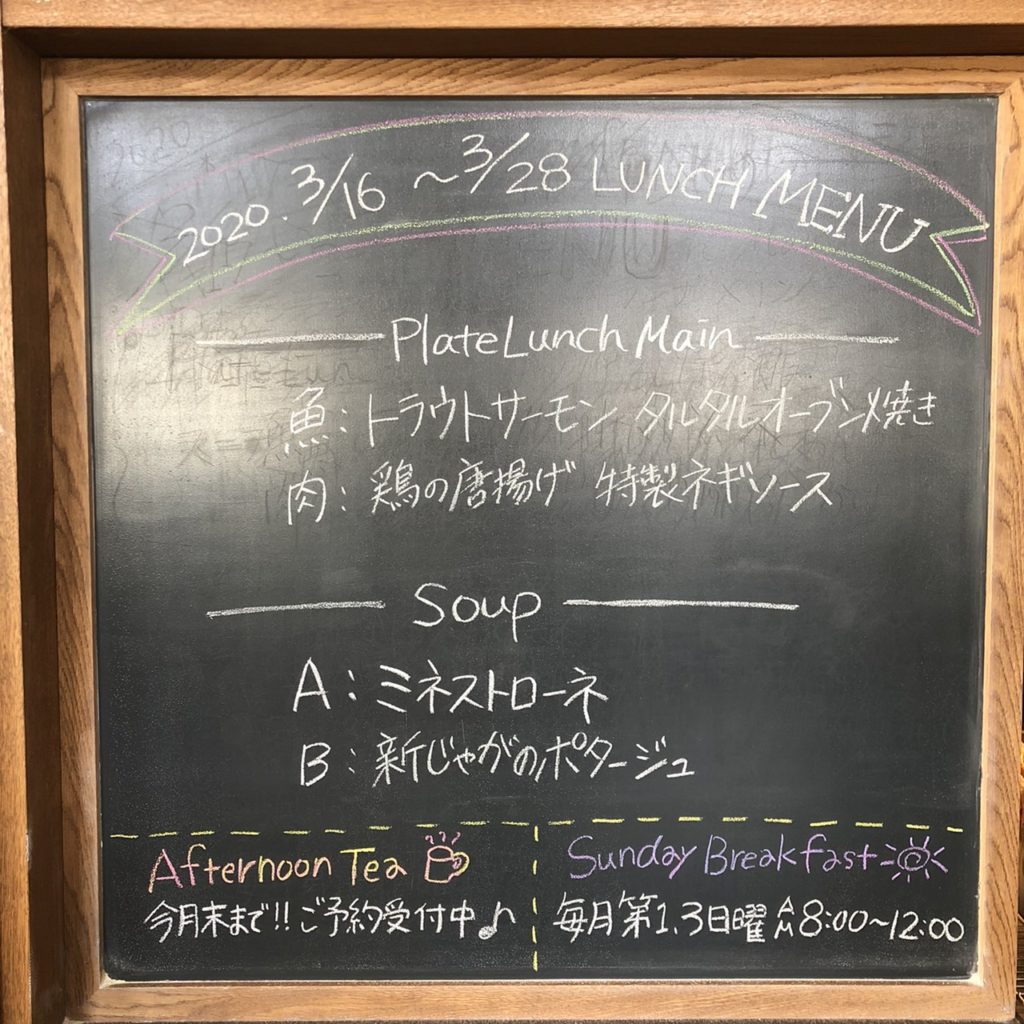 2020. 3/16 ～ 3/28 LUNCH MENU
Plate Lunch Main
魚: トラウトサーモン タルタルオーブン焼き
肉: 鶏の唐揚げ 特製ネギソース
Soup
A: ミネストローネ
B: 新じゃがのポタージュ
Afternoon Tea
今月末まで!! ご予約受付中♪
Sunday Breakfast
毎月第1.3日曜 AM8:00～12:00